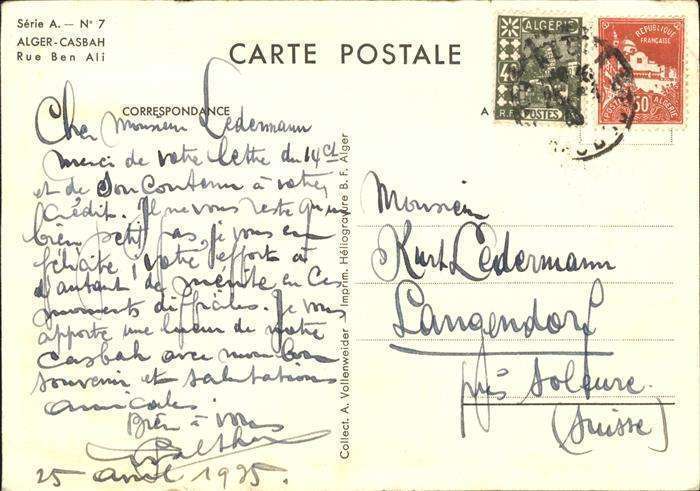 Série A. — N° 7
ALGER-CASBAH
Rue Ben Ali
CARTE POSTALE
CORRESPONDANCE
A
ALGÉRIE
R.F. POSTES
RÉPUBLIQUE
FRANÇAISE
50
POSTES ALGÉRIE
Cher Monsieur Ledermann
Merci de votre lettre du 14 ct
et de son contenu à votre
crédit. Il ne vous reste qu'un
bien petit pas, je vous en
félicite! Votre effort a
d'autant de mérite en ces
moments difficiles. Je vous
apporte une lueur de notre
casbah avec mon bon
souvenir et salutations
amicales.
Bien à vous
25 avril 1935.
Collect. A. Vollenweider - Imprim. Héliogravure B. F. Alger
Monsieur
Kurt Ledermann
Langendorf
près Soleure.
(Suisse)